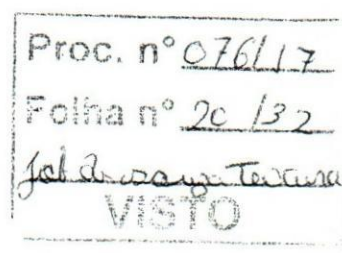 Proc. nº 076/17
Folha nº 20/32
Teixeira
VISTO